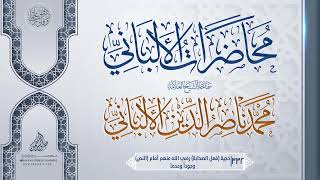 محاضرات الألباني
سماحة الشيخ العلامة
محمد ناصر الدين الألباني
حجية (فعل الصحابة) رضي الله عنهم أمام (النص)
وجوداً وعدماً